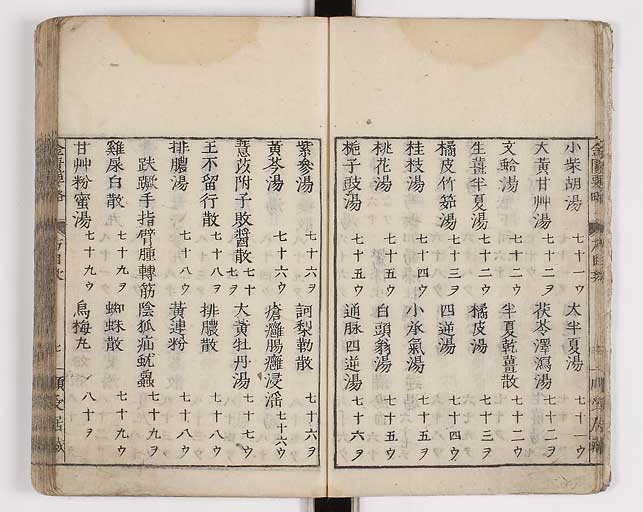 小柴胡湯 七十一ウ 大半夏湯 七十一ウ
大黄甘艸湯 七十二ヲ 茯苓澤瀉湯 七十二ヲ
文蛤湯 七十二ウ 半夏乾薑散 七十二ウ
生薑半夏湯 七十二ウ 橘皮湯 七十三ヲ
橘皮竹筎湯 七十三ヲ 四逆湯 七十四ウ
桂枝湯 七十四ウ 小承氣湯 七十五ヲ
桃花湯 七十五ウ 白頭翁湯 七十五ウ
梔子豉湯 七十五ウ 通脉四逆湯 七十六ヲ
紫參湯 七十六ヲ 訶梨勒散 七十六ヲ
黄芩湯 七十六ウ 瘡癰腸癰浸淫 七十六ウ
薏苡附子敗醤散 七十七ヲ 大黄牡丹湯 七十七ウ
王不留行散 七十八ヲ 排膿散 七十八ウ
排膿湯 七十八ウ 黄連粉 七十八ウ
趺蹶手指臂腫轉筋陰狐疝蚘蟲 七十九ヲ
雞屎白散 七十九ヲ 蜘蛛散 七十九ウ
甘艸粉蜜湯 七十九ウ 烏梅丸 八十ヲ
金匱要略 方目次